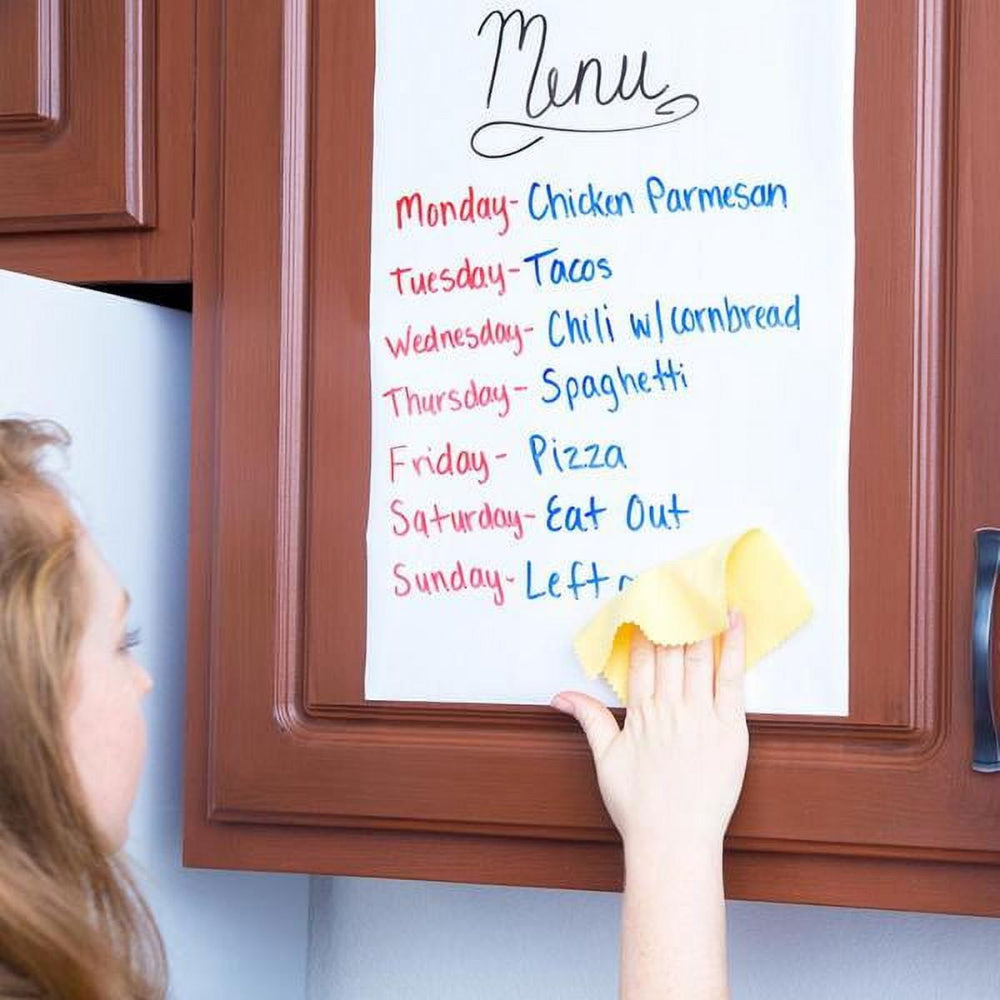 Menu
Monday- Chicken Parmesan
Tuesday- Tacos
Wednesday- Chili w/cornbread
Thursday- Spaghetti
Friday- Pizza
Saturday- Eat Out
Sunday-